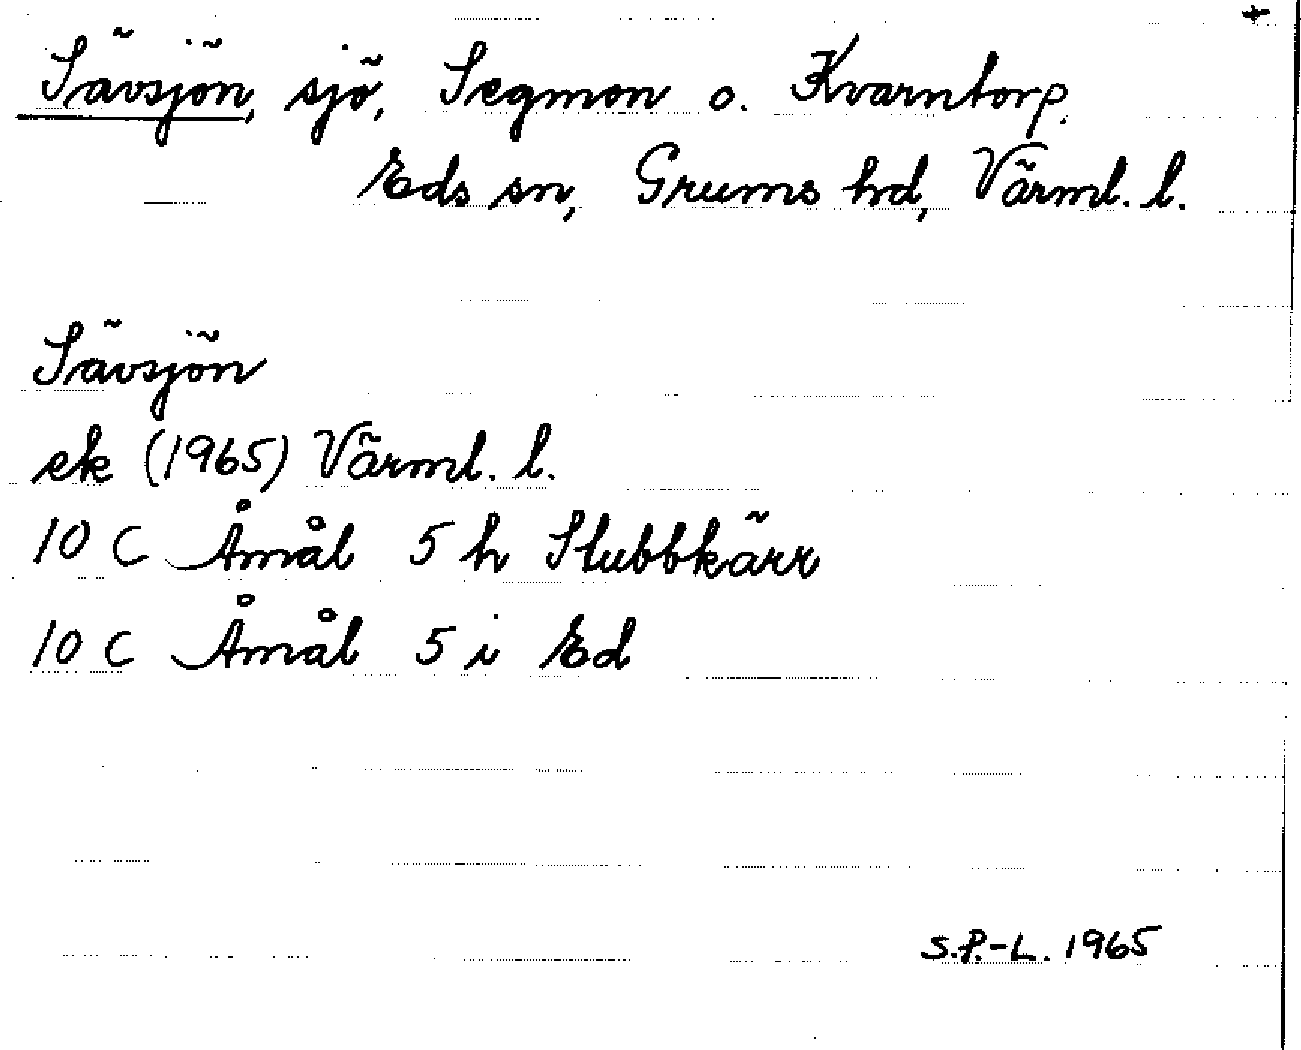 +
Sävsjön, sjö, Segmon o. Kvarntorp.
Eds sn, Grums hd, Värml. l.
Sävsjön
ek (1965) Värml. l.
10 C Åmål 5 h Stubbkärr
10 C Åmål 5 i Ed
S.P.-L. 1965